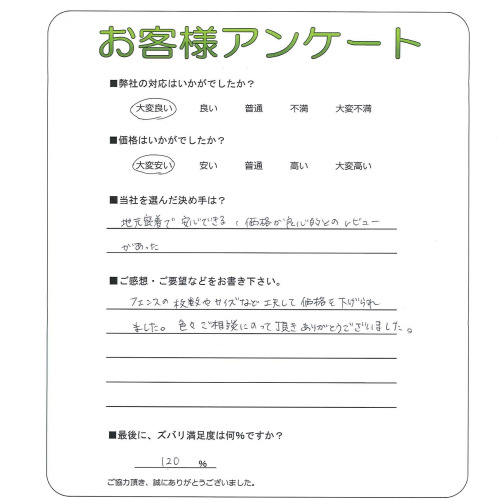 お客様アンケート
■弊社の対応はいかがでしたか？
大変良い 良い 普通 不満 大変不満
■価格はいかがでしたか？
大変安い 安い 普通 高い 大変高い
■当社を選んだ決め手は？
地元密着で安心できる、価格が良心的とのレビュー
があった
■ご感想・ご要望などをお書き下さい。
フェンスの枚数やサイズなど工夫して価格を下げられ
ました。色々ご相談にのって頂きありがとうございました。
■最後に、ズバリ満足度は何％ですか？
120 ％
ご協力頂き、誠にありがとうございました。